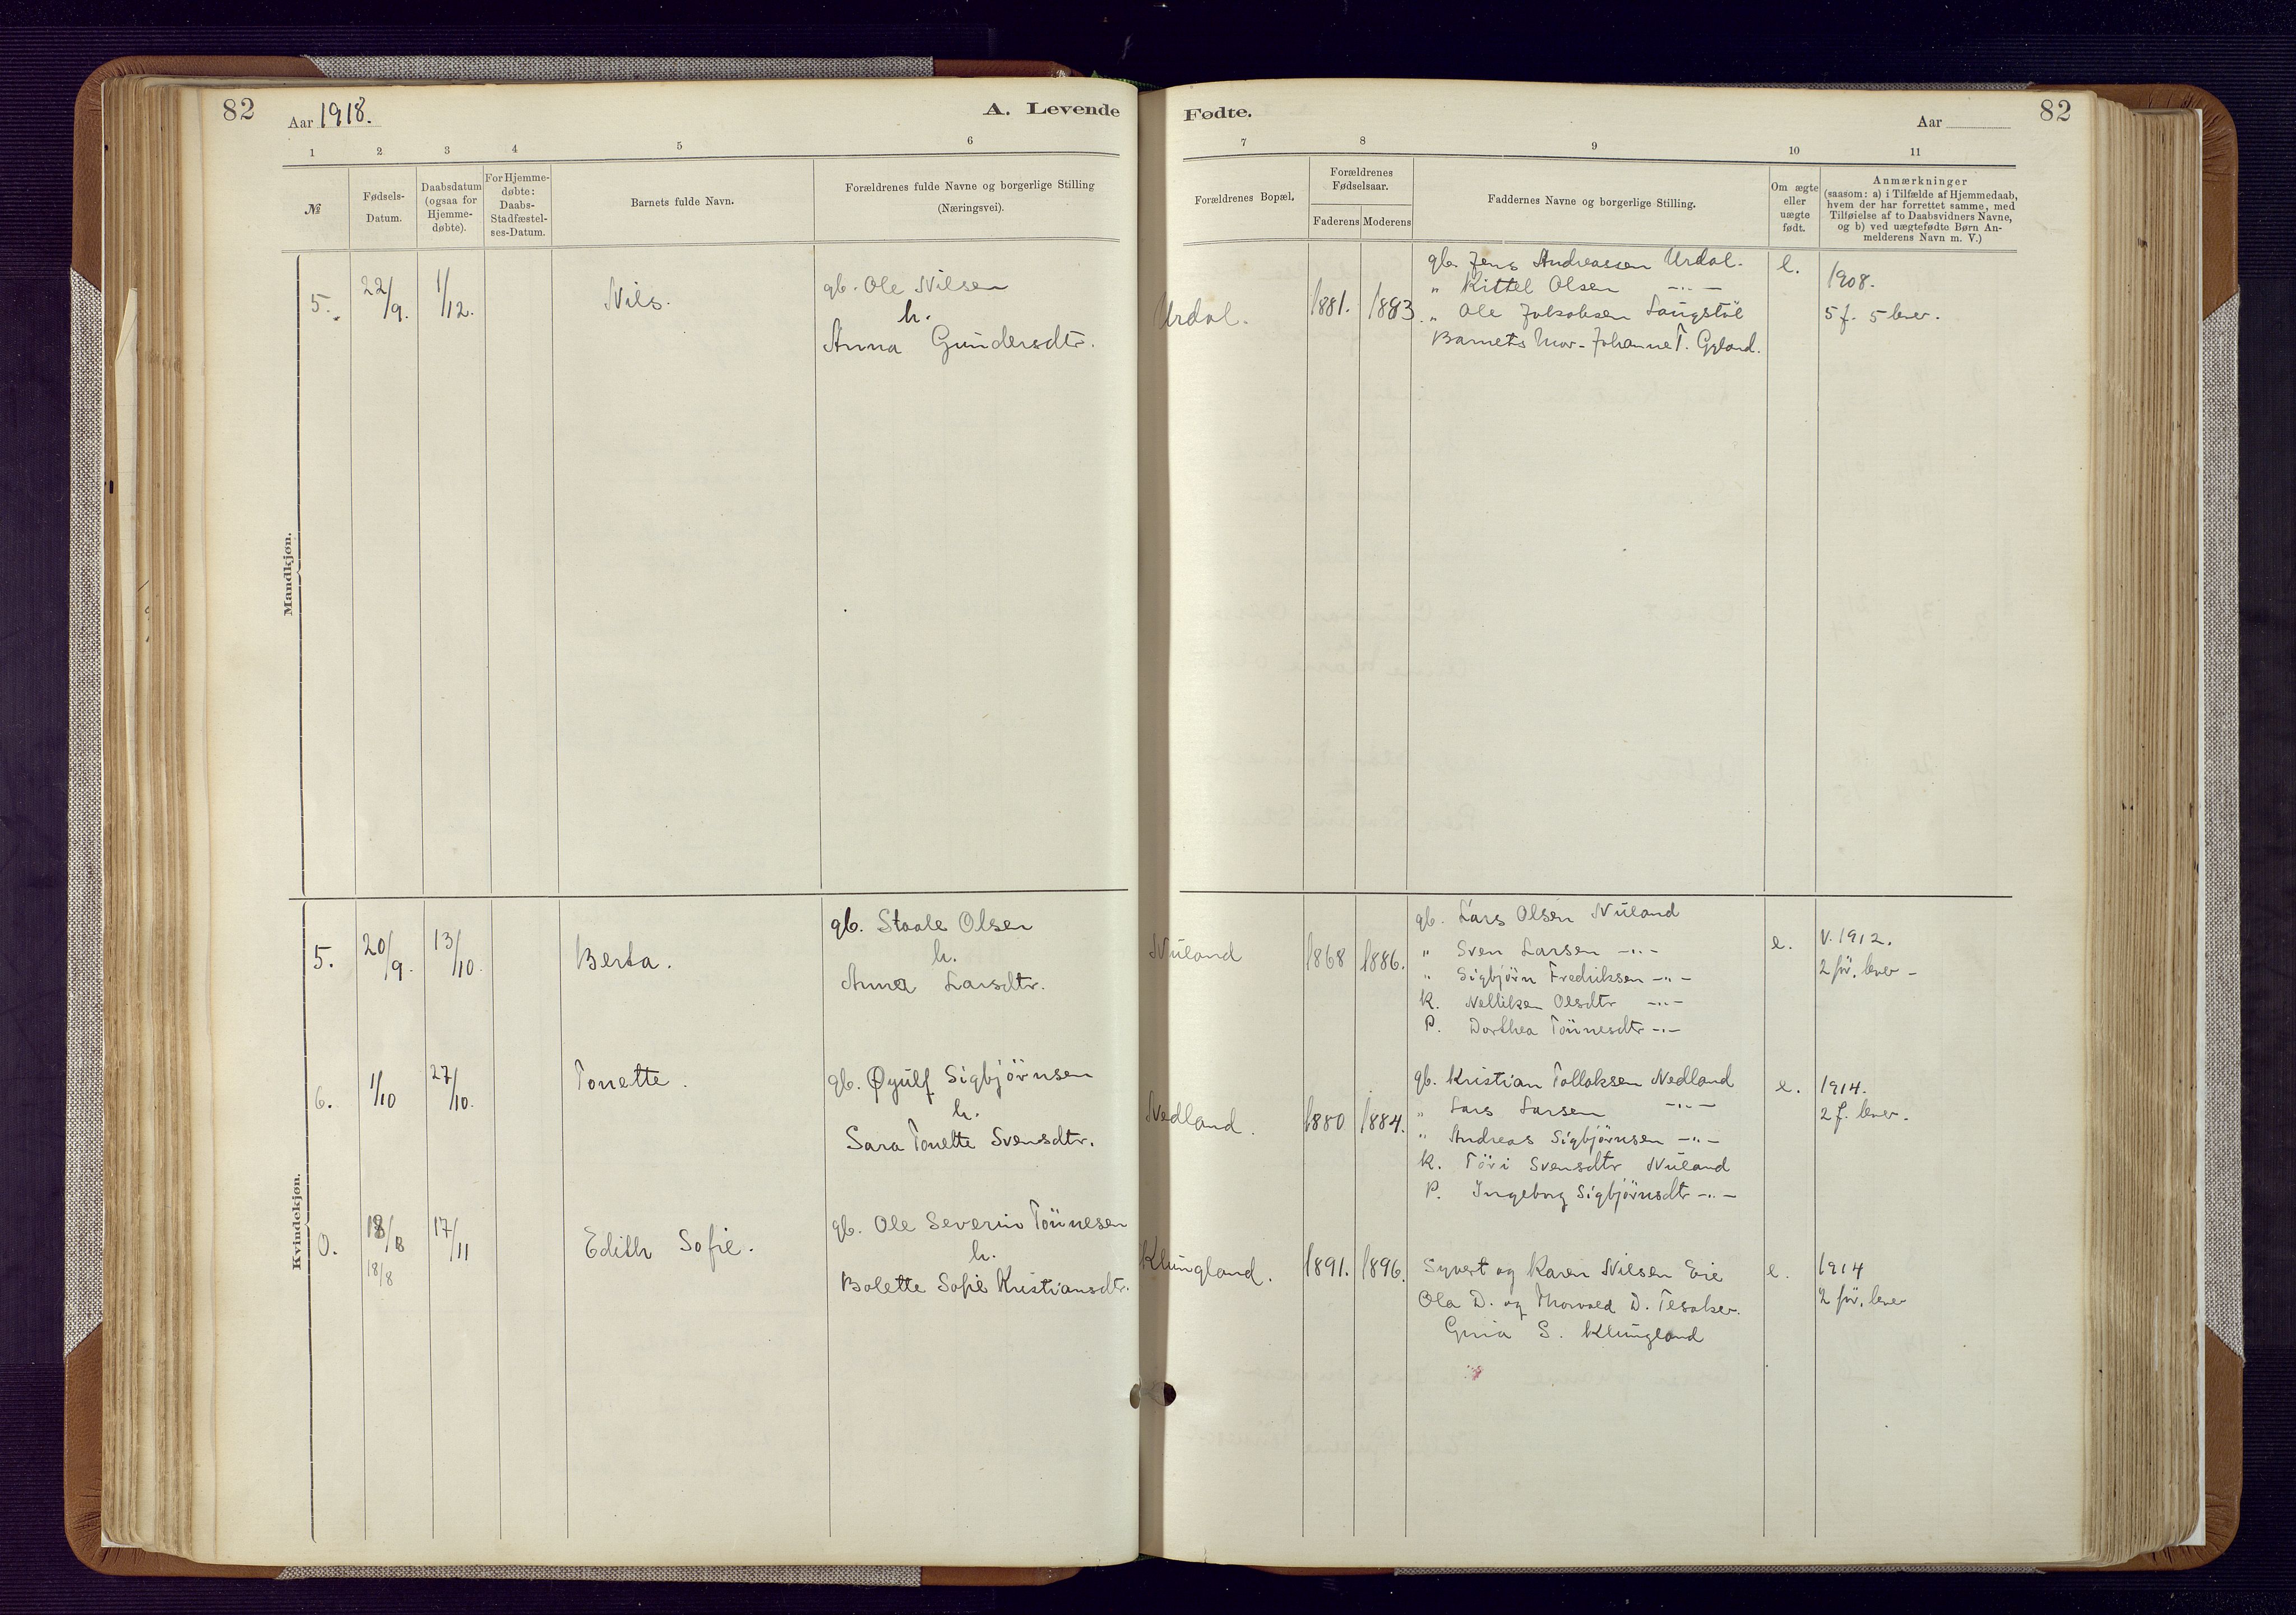 82
Aar 1918.
A. Levende
Fødte.
Aar
82
1 2 3 4 5 6
7 8 9 10 11
№
Fødsels-
Datum.
Daabsdatum
(ogsaa for
Hjemme-
døbte).
For Hjemme-
døbte:
Daabs-
Stadfæstel-
ses-Datum.
Barnets fulde Navn.
Forældrenes fulde Navne og borgerlige Stilling
(Næringsvei).
Forældrenes Bopæl.
Forældrenes
Fødselsaar.
Faderens Moderens
Faddernes Navne og borgerlige Stilling.
Om ægte
eller
uægte
født.
Anmærkninger
(saasom: a) i Tilfælde af Hjemmedaab,
hvem der har forrettet samme, med
Tilføielse af to Daabsvidners Navne,
og b) ved uægtefødte Børn An-
melderens Navn m. V.)
Mandkjøn.
5.
22/9.
1/12.
Nils.
gb. Ole Nilsen
h.
Anna Gundersdtr.
Urdal.
1881. 1883.
gb. Jens Andreassen Urdal.
" Kittel Olsen -"-
" Ole Jakobsen Langstöl
Barnets mor - Johanne T. Gyland.
e.
1908.
5 f. 5 lever.
Kvindekjøn.
5.
20/9.
13/10.
Berta.
gb. Staale Olsen
h.
Anna Larsdtr.
Nuland
1868 1886.
gb. Lars Olsen Nuland
" Sven Larsen -"-
" Sigbjörn Fredriksen -"-
K. Nelliken Olsdtr -"-
P. Dorthea Tönnesdtr -"-
e.
V. 1912.
2 för, lever -
6.
1/10
27/10.
Tonette.
gb. Øyulf Sigbjörnsen
h.
Sara Tonette Svensdtr.
Nedland.
1880 1884.
gb. Kristian Tollaksen Nedland
" Lars Larsen -"-
" Andreas Sigbjörnsen -"-
K. Töri Svensdtr Nuland
P. Ingeborg Sigbjörnsdtr -"-
e.
1914.
2 f. lever.
0.
18/8
18/8
17/11
Edith Sofie.
gb. Ole Severin Tönnesen
h.
Bolette Sofie Kristiansdtr.
Klungland.
1891. 1896.
Syvert og Karen Nilsen Eie
Ola D. og Thorvald D. Tesaker.
Gina S. Klungland
e.
1914
2 för, lever